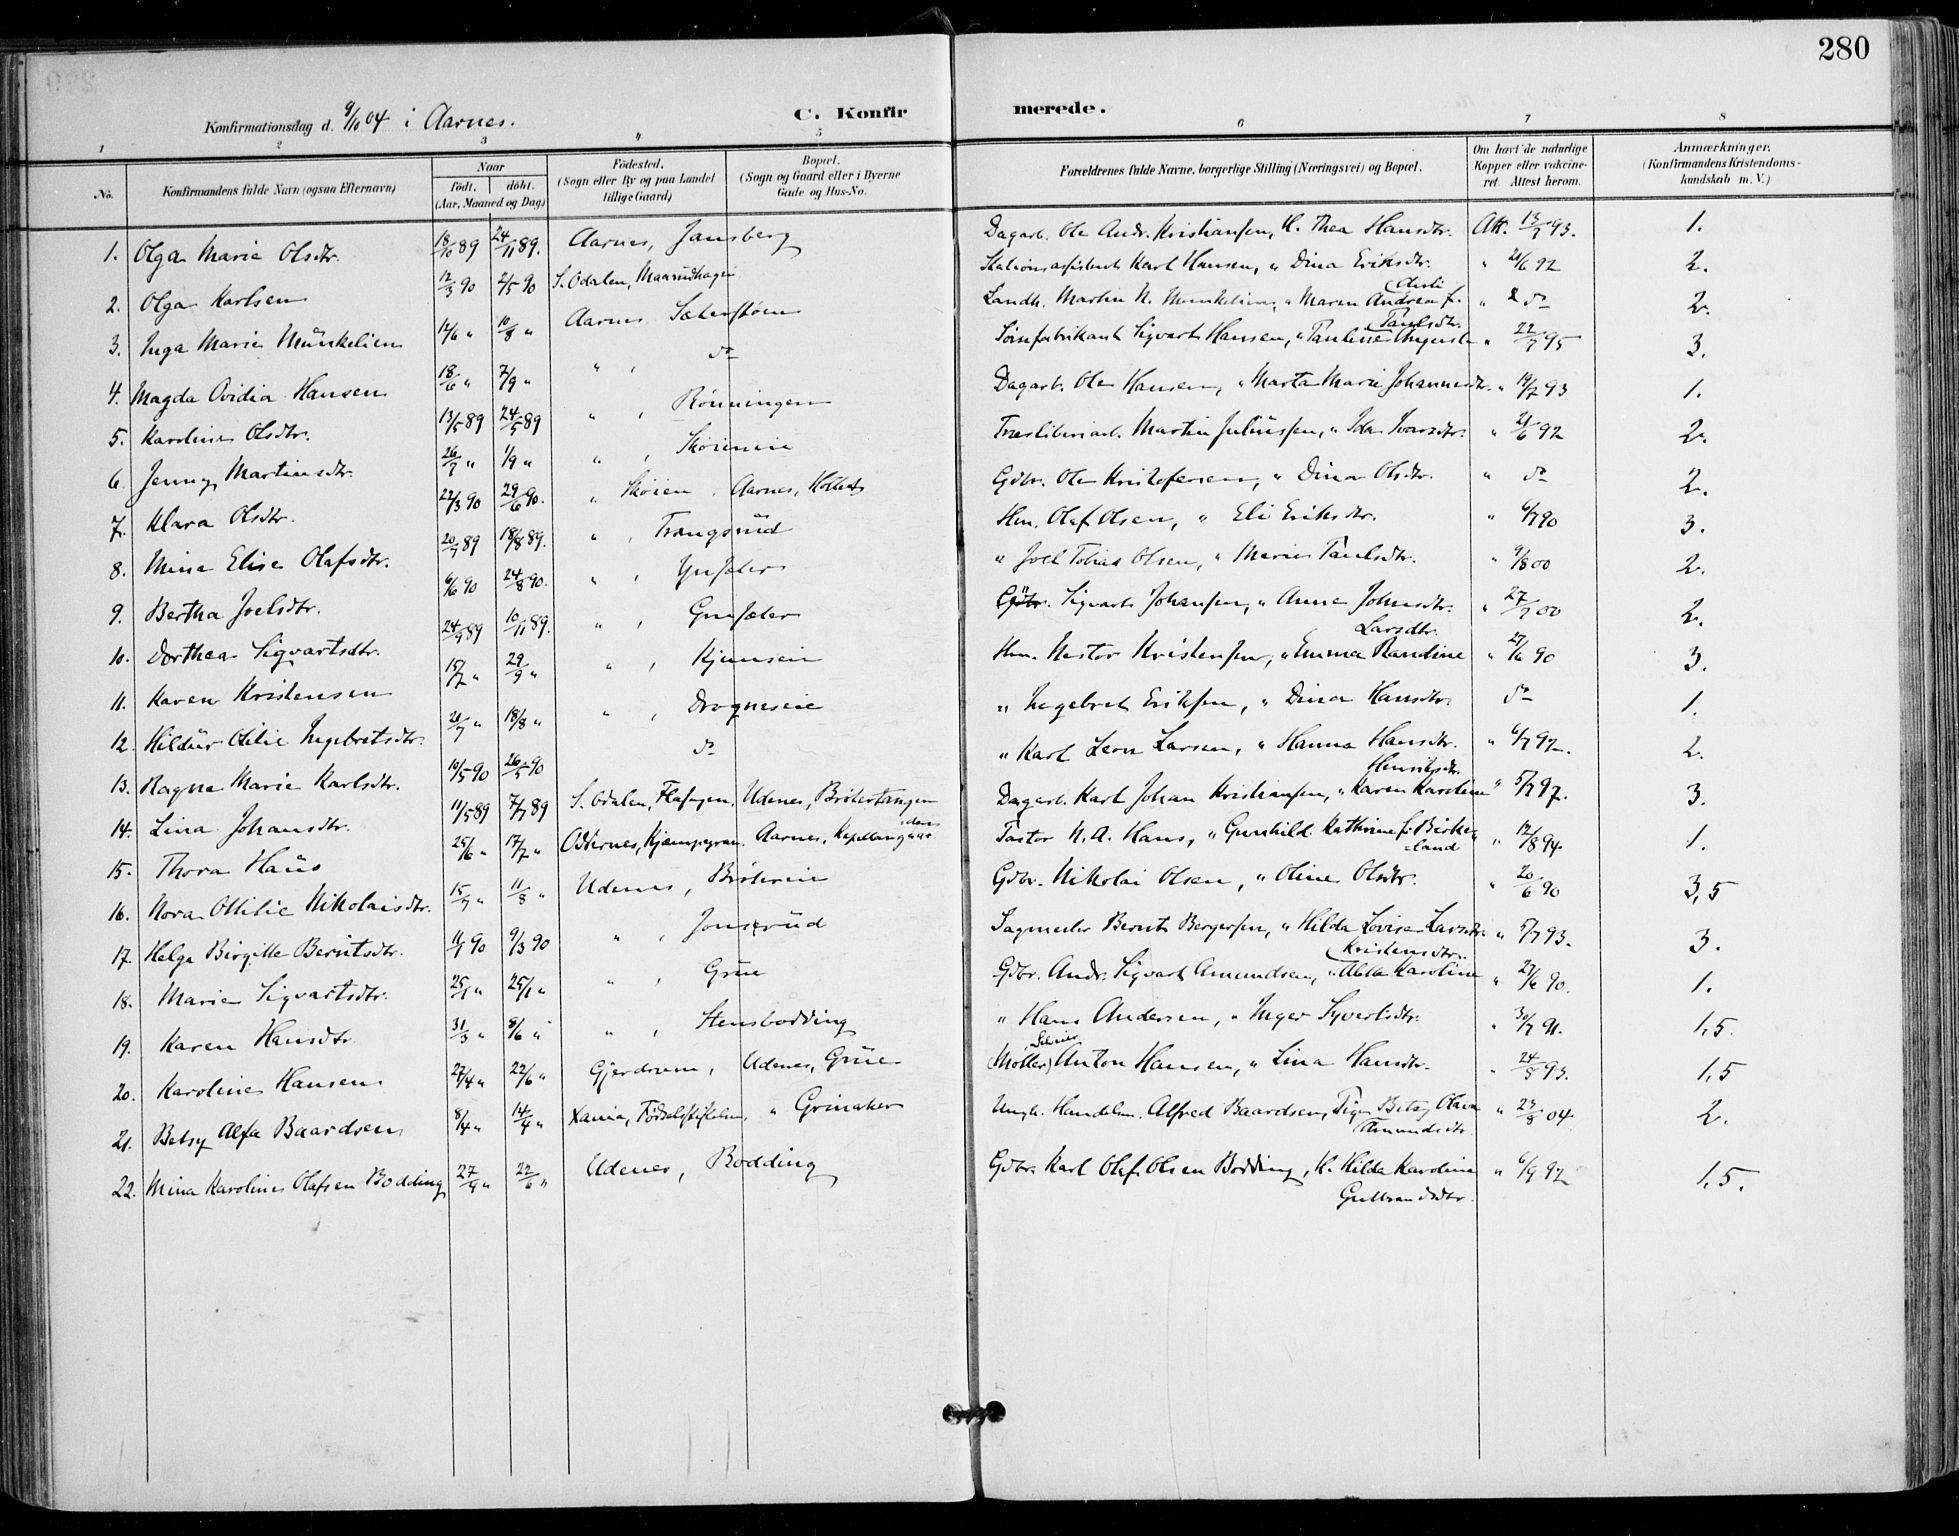 280
Konfirmationsdag d. 9/10 04 i Aarnes. C. Konfirmerede.
1 2 3 " 5 6 7 8
No. Konfirmandens fulde Navn (ogsaa Efternavn) Naar født. døbt. (Aar, Maaned og Dag) Fødested. (Sogn eller By og paa Landet tillige Gaard) Bopæl. (Sogn og Gaard eller i Byerne Gade og Hus-No. Forældrenes fulde Navne, borgerlige Stilling (Næringsvei) og Bopæl. Om havt de naturlige Kopper eller vakcineret. Attest herom. Anmærkninger. (Konfirmandens Kristendomskundskab m. V.)
1. Olga Marie Olsdtr. 18/10 89 24/11 89. Aarnes, Jansberg Dagarb. Ole Andr. Kristiansen, K. Thea Hansdtr. Att. 13/7 93. 1.
2. Olga Karlsen 12/3 90 2/5 90 S. Odalen, Maarudhagen Stationsassistent Karl Hansen, " Dina Eriksdtr. " 21/6 92 2.
3. Inga Marie Munkelien 12/6 " 10/8 " Aarnes, Sæterstøen Landh. Martin N. Munkelien, " Maren Andrea f. " do 2.
4. Magda Ovidia Hansen 18/6 " 7/9 " " , do Sigvart Hansen, " Pauline Paulsdtr. " 22/7 95 3.
5. Karoline Olsdtr. 13/5 89 24/5 89 " , Rønningen Dagarb. Ole Hansen, " Marta Marie Johannesdtr. " 19/7 93 1.
6. Jenny Martinsdtr. 26/7 " 1/9 " " , Skøieneie Træsliberiarb. Martin Juliussen, " Ida Ivarsdtr. " 21/6 92 2.
7. Klara Olsdtr. 22/3 90 29/6 90. " Skøien, Aarnes, Gdbr. Ole Kristofersen, " Dina Olsdtr. " do 2.
8. Mina Elise Olafsdtr. 20/7 89 18/8 89. " , Trangsrud Hm. Olaf Olsen, " Eli Eriksdtr. " 6/7 90 3.
9. Bertha Joelsdtr. 6/6 90 24/8 90. " , " Joel Tobias Olsen, " Marie Paulsdtr. " 9/8 00 2.
10. Dorthea Sigvartsdtr. 24/9 89 10/11 89. " , Sigvart Johansen, " Anne Johnsdtr. " 27/7 00 2.
11. Karen Kristensen 15/7 " 29/9 " " , Hm. Nestor Kristensen, " Emma Randine Larsdtr. " 27/6 90 3.
12. Hildur Otilie Ingebretsdtr. 21/7 " 18/8 " " , Dragneseie " Ingebret Eriksen, " Dina Hansdtr. do 1.
13. Ragna Marie Karlsdtr. 10/5 90 26/5 90 do " Karl Leon Larsen, " Hanna Hansdtr. " 6/7 92. 2.
14. Lina Johansdtr. 11/5 89 7/7 89 S. Odalen, Udenes, Brøtertangen Dagarb. Karl Johan Kristiansen, " Karen Karoline Henriksdtr. " 5/7 97. 3.
15. Thora Haus 25/6 " 17/7 " Aarnes, Kapellangaarden Pastor N. A. Haus, " Gunhild Kathrine f. Birkeland " 12/8 94. 1.
16. Nora Ottilie Nikolaisdtr. 15/7 " 11/8 " Udenes, Brøtereie Gdbr. Nikolai Olsen, " Oline Olsdtr. " 20/6 90 3,5
17. Helga Birgitte Berntsdtr. 11/1 90 9/3 90 " , Jonsrud Sagmester Bernt Bergersen, " Hilda Lovise Larsdtr. " 5/7 93. 3.
18. Marie Sigvartsdtr. 25/1 " 25/1 " " , Grue Gdbr. Andr. Sigvart Amundsen, " Karoline Kristensdtr. " 27/6 90. 1.
19. Karen Hansdtr. 31/3 " 8/6 " " , Stensbodding " Hans Andersen, " Inger Syvertsdtr. " 3/7 91. 1,5.
20. Karoline Hansen 27/4 " 22/6 " Gjerdrum, Udenes, Grue Møller Anton Hansen, " Lina Hansdtr. " 24/5 93. 1,5
21. Betsy Alfa Baardsen 8/4 " 14/4 " Xania, Fødselsstiftelsen, " Grinaker Ungk. Handelsm. Alfred Baardsen, Pige Betsy Olava Amundsdtr. " 29/8 04. 2.
22. Mina Karoline Olafsen Bodding 27/4 " 22/6 " Udenes, Bodding Gdbr. Karl Olaf Olsen Bodding, K. Hilda Karoline Gulbrandsdtr. " 6/9 92 1,5.